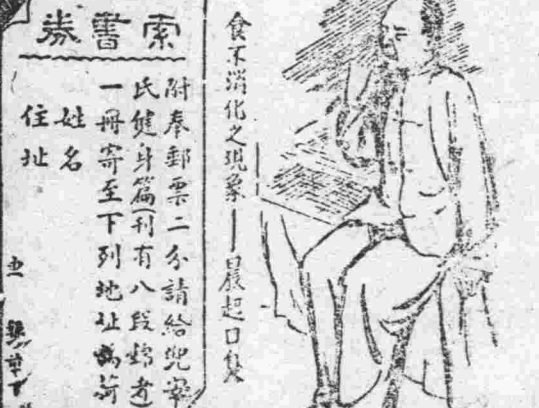 食不消化之現象——晨起口臭
索書券
附奉郵票二分請給兜安
氏健身篇(刊有八段錦者)
一冊寄至下列地址為荷
姓名
住址